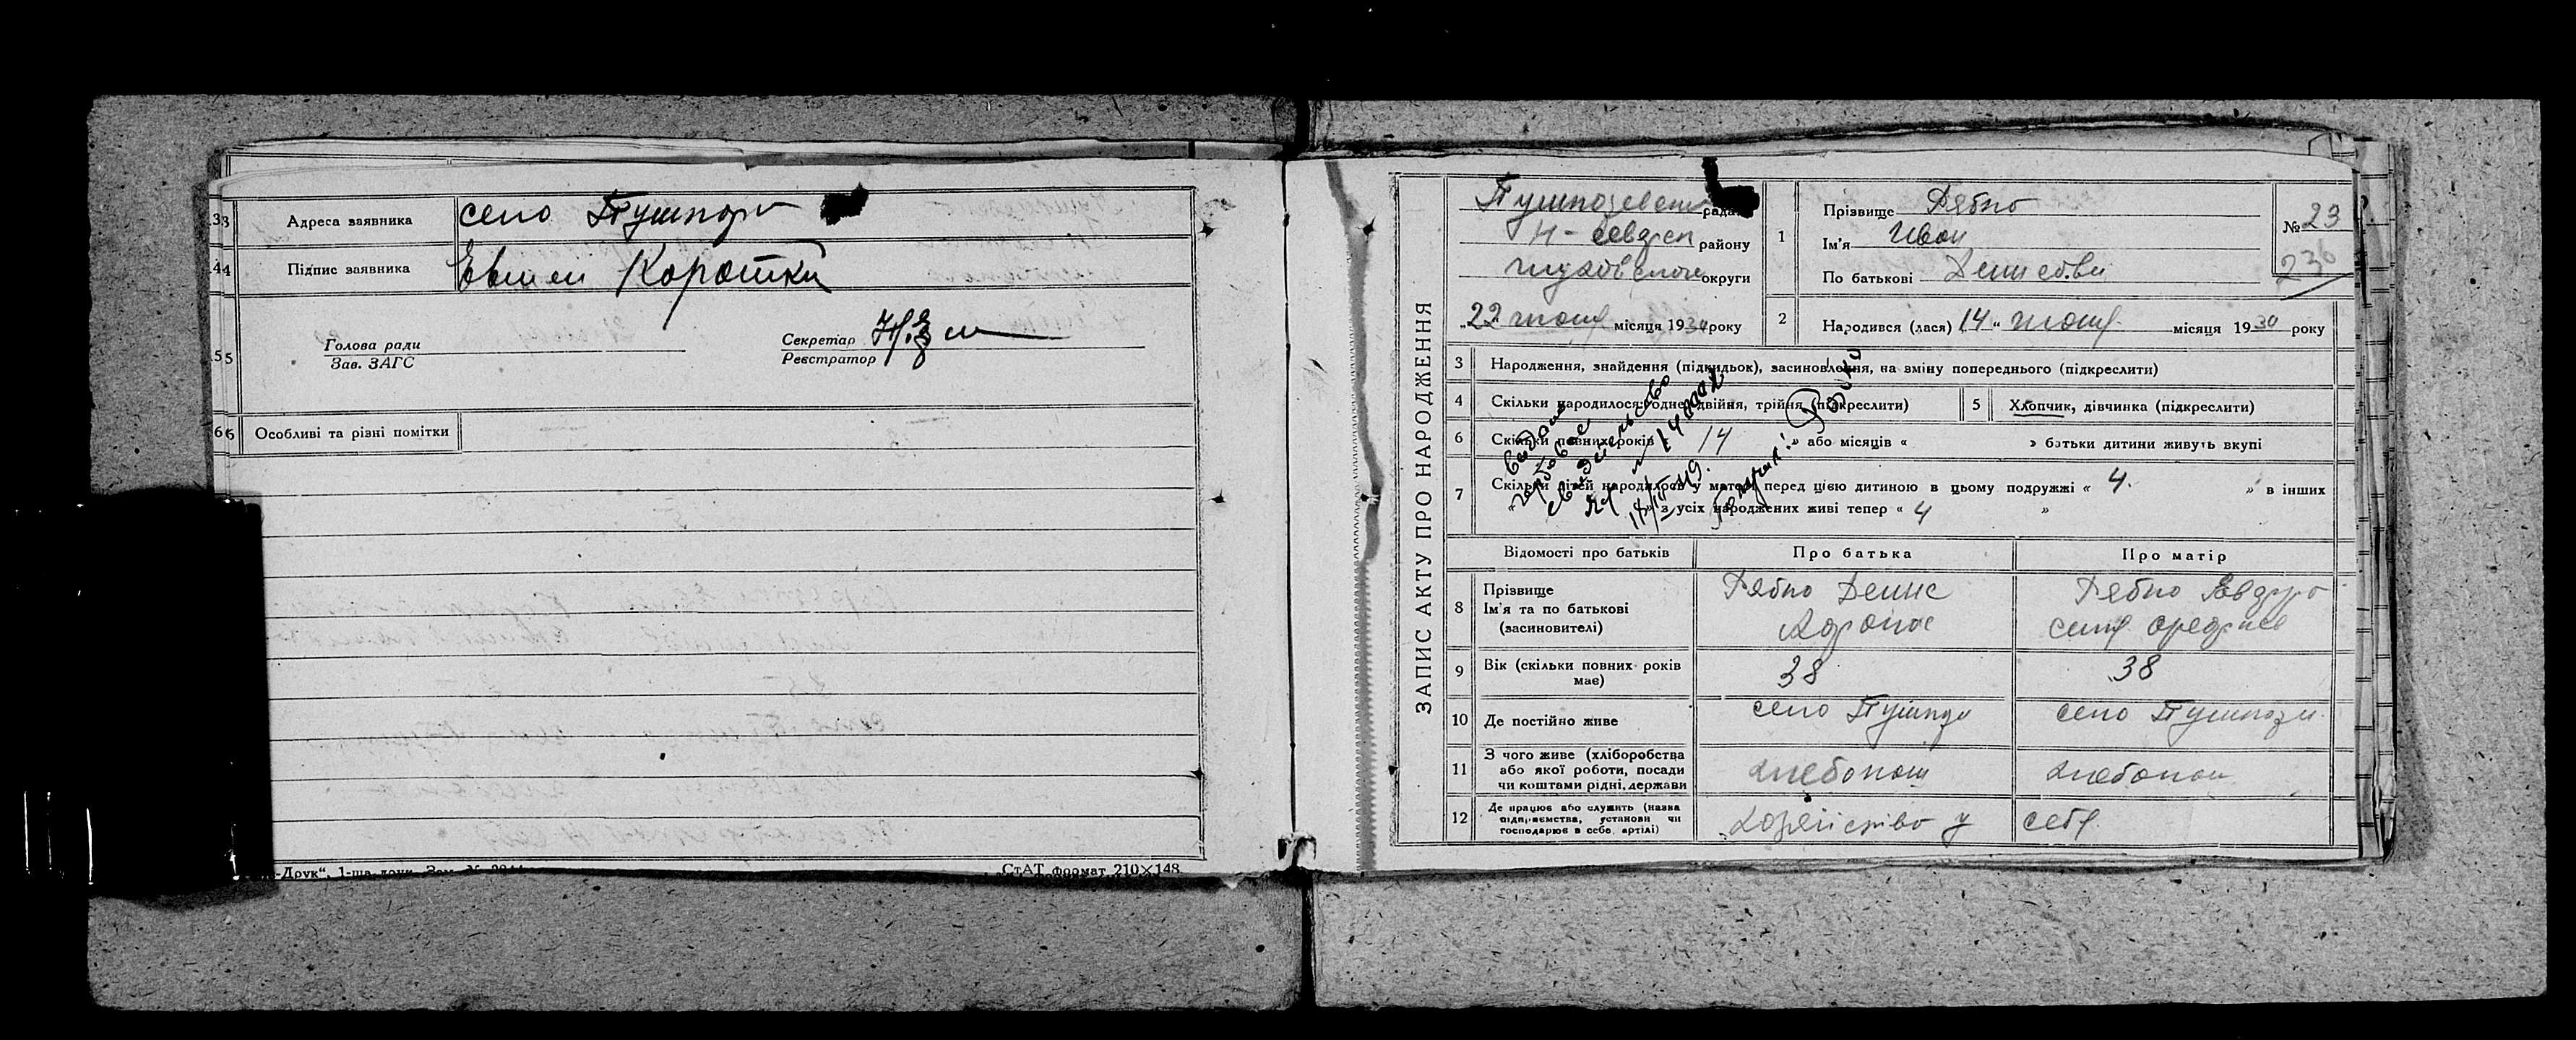 33 Адреса заявника село Тушкари
44 Підпис заявника Евмен Коротки
55 Голова ради
Зав. ЗАГС
Секретар
Реєстратор
66 Особливі та різні помітки
-Друк“, 1-ша друк. Зам. №
СтАТ формат 210×148
ЗАПИС АКТУ ПРО НАРОДЖЕННЯ
рада
району
округи
„22“ июня місяця 1930 року
1 Прізвище Рябко
Ім'я Иван
По батькові Денисови
№ 23
230
2 Народився (лася) 14 “ июня місяця 1930 року
3 Народження, знайдення (підкидьок), засиновлення, на зміну попереднього (підкреслити)
4 Скільки народилося: одне, двійня, трійня (підкреслити)
5 Хлопчик, дівчинка (підкреслити)
6 Скільки повних років « 14 » або місяців « » батьки дитини живуть вкупі
7 Скільки дітей народилось у матері перед цією дитиною в цьому подружжі « 4. » в інших
« » з усіх народжених живі тепер « 4 »
выдано
свидетельство
Відомості про батьків
Про батька
Про матір
8 Прізвище
Ім'я та по батькові
(засиновителі)
Рябко Денис
Рябко
9 Вік (скільки повних років
має)
38
38
10 Де постійно живе
село
село
11 З чого живе (хліборобства
або якої роботи, посади
чи коштами рідні, держави
хлебопаш
хлебопаш
12 Де працює або служить (назва
підприємства, установи чи
господарює в себе, артілі)
хозяйство у себя